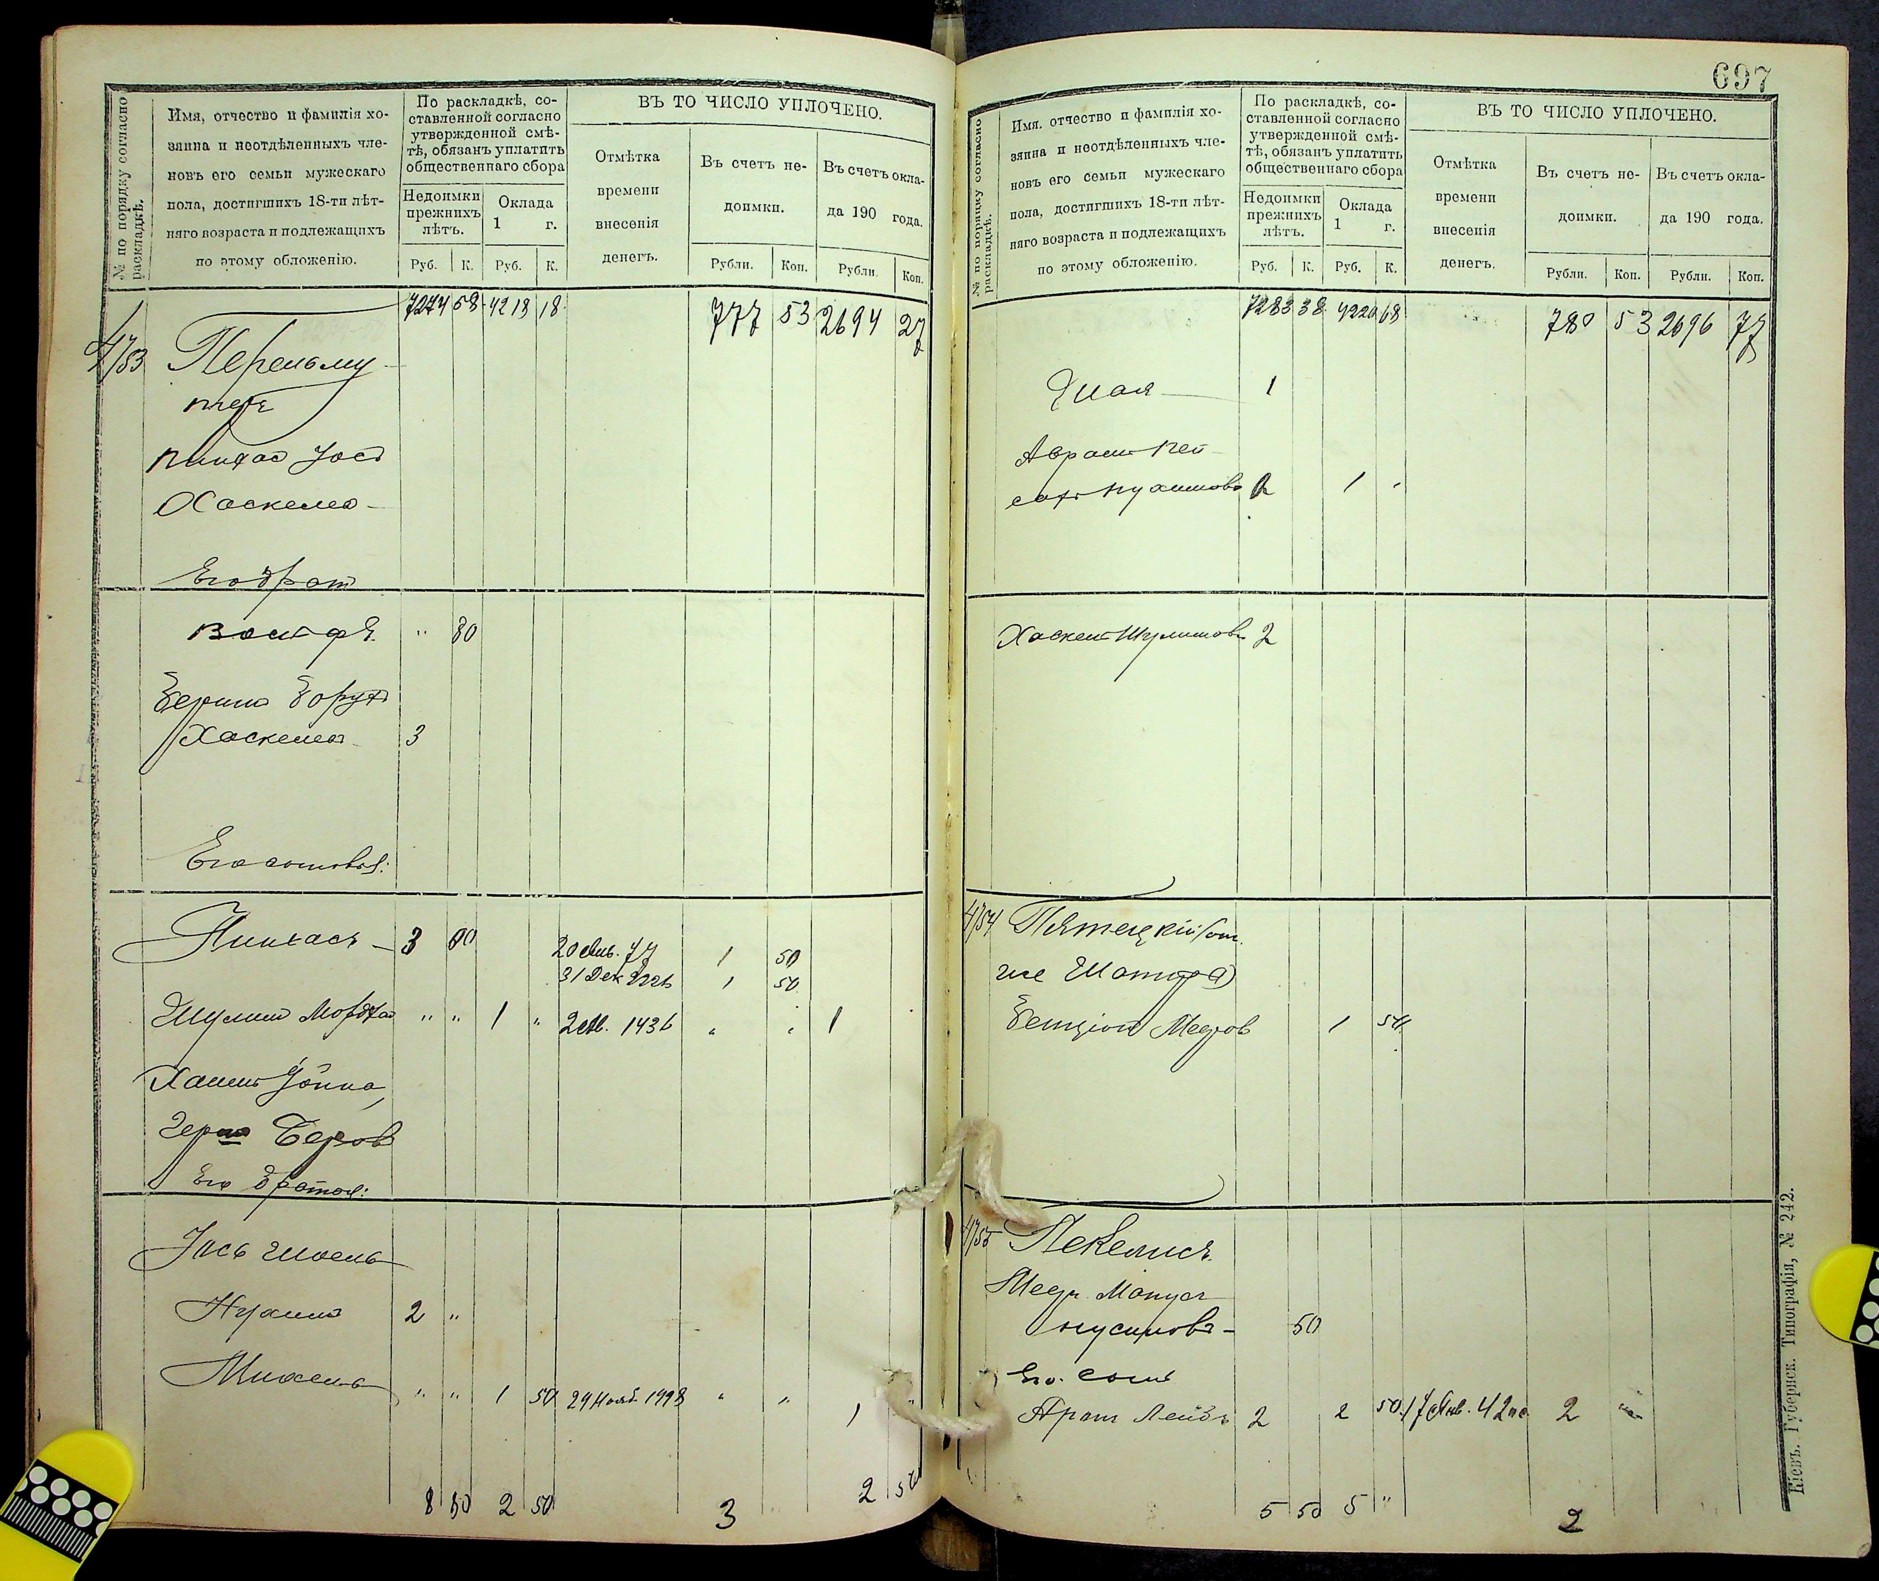 № по порядку согласно раскладкѣ.
Имя, отчество и фамилія хо-
зяина и неотдѣленныхъ чле-
новъ его семьи мужескаго
пола, достигшихъ 18-ти лѣт-
няго возраста и подлежащихъ
по этому обложенію.
По раскладкѣ, со-
ставленной согласно
утвержденной смѣ-
тѣ, обязанъ уплатить
общественнаго сбора
Недоимки
прежнихъ
лѣтъ.
Оклада
1 г.
Руб. К. Руб. К.
ВЪ ТО ЧИСЛО УПЛОЧЕНО.
Отмѣтка
времени
внесенія
денегъ.
Въ счетъ не-
доимки.
Въ счетъ окла-
да 190 года.
Рубли. Коп. Рубли. Коп.
7274 58 4218 18 777 53 2694 27
4753 Перельму-
теръ
Пинхас Іось
Хаскелев
Его брат
Вольф 80
Берко Борух
Хаскелев 3
Его сыновья:
Пинхасъ 3 20 Янв. 77 1 50
31 Дек 1 50
Шулим Мордко " " 1 " 1436 " " 1
Хаим
Беров
Его братья:
Іось Шоель
Нухим 2 "
Михель " " 1 50 29 Нояб. 1998 " " 1
8 80 2 50 3 2 50
697
№ по порядку согласно раскладкѣ.
Имя, отчество и фамилія хо-
зяина и неотдѣленныхъ чле-
новъ его семьи мужескаго
пола, достигшихъ 18-ти лѣт-
няго возраста и подлежащихъ
по этому обложенію.
По раскладкѣ, со-
ставленной согласно
утвержденной смѣ-
тѣ, обязанъ уплатить
общественнаго сбора
Недоимки
прежнихъ
лѣтъ.
Оклада
1 г.
Руб. К. Руб. К.
ВЪ ТО ЧИСЛО УПЛОЧЕНО.
Отмѣтка
времени
внесенія
денегъ.
Въ счетъ не-
доимки.
Въ счетъ окла-
да 190 года.
Рубли. Коп. Рубли. Коп.
7283 38 4220 68 780 53 2696 77
1
Аврам Пей-
сах Нухимов 2 1
Хаскель Шулимов 2
4754 Пятецкій (он
же Шапиро)
Бенціон Мееров 1 50
4755 Пекелисъ
Меер Манус
Нусимовъ 50
Его сын
Арон Лейбъ 2 2 50 17 Янв. 42 2
5 50 5 " 2
Кіевъ. Губернск. Типографія, № 242.